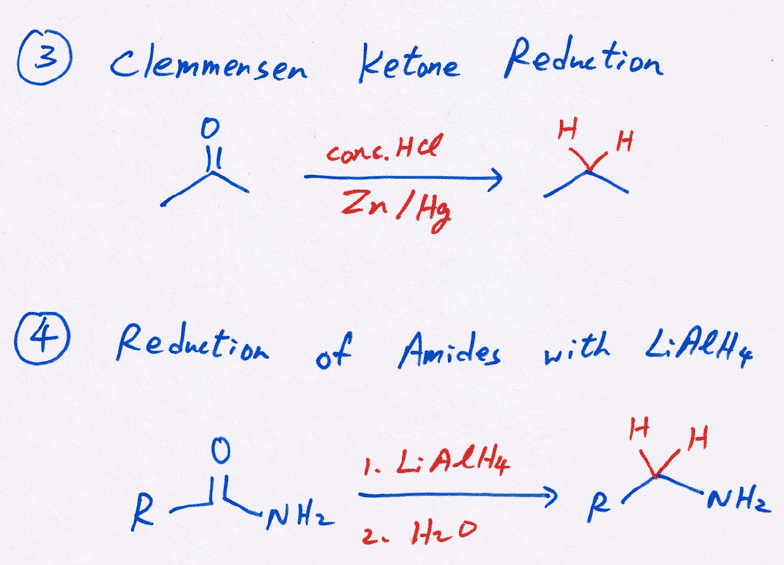 ③ Clemmensen Ketone Reduction
O
conc. HCl
H H
Zn/Hg
④ Reduction of Amides with LiAlH4
O
H H
1. LiAlH4
R NH2
R NH2
2. H2O